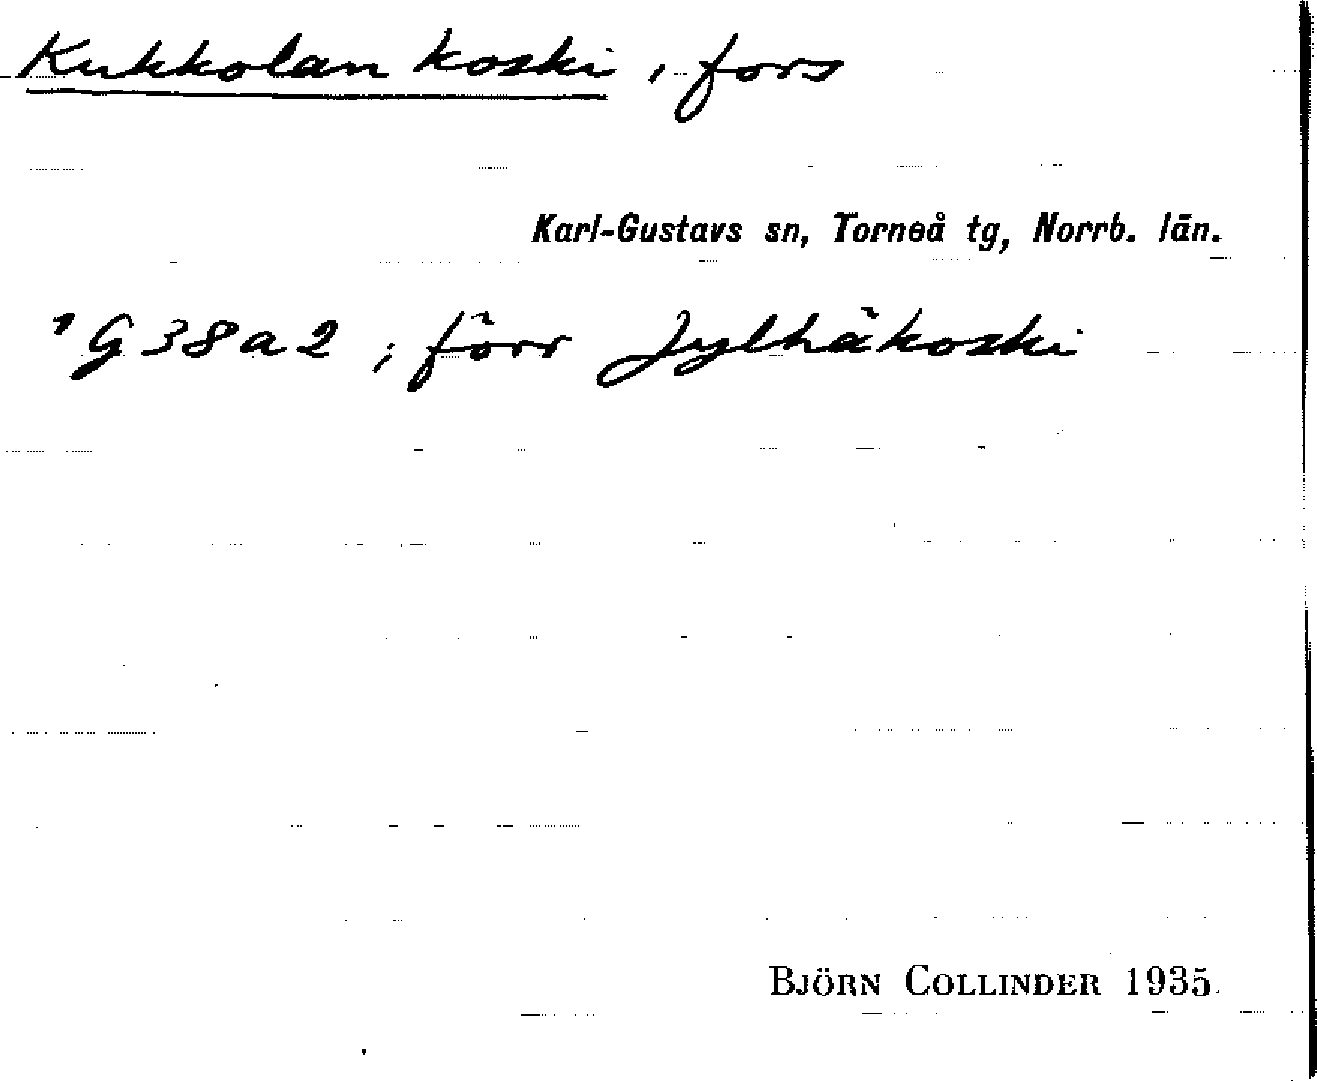 Kukkolan koski, fors
Karl-Gustavs sn, Torneå tg, Norrb. län.
G38a2; förr Jylhäkoski
BJÖRN COLLINDER 1935